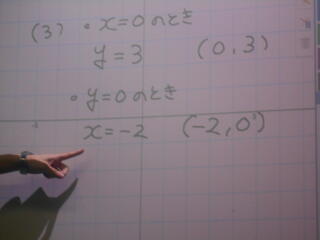 (3) • x=0のとき
y=3 (0,3)
• y=0のとき
x=-2 (-2,0)